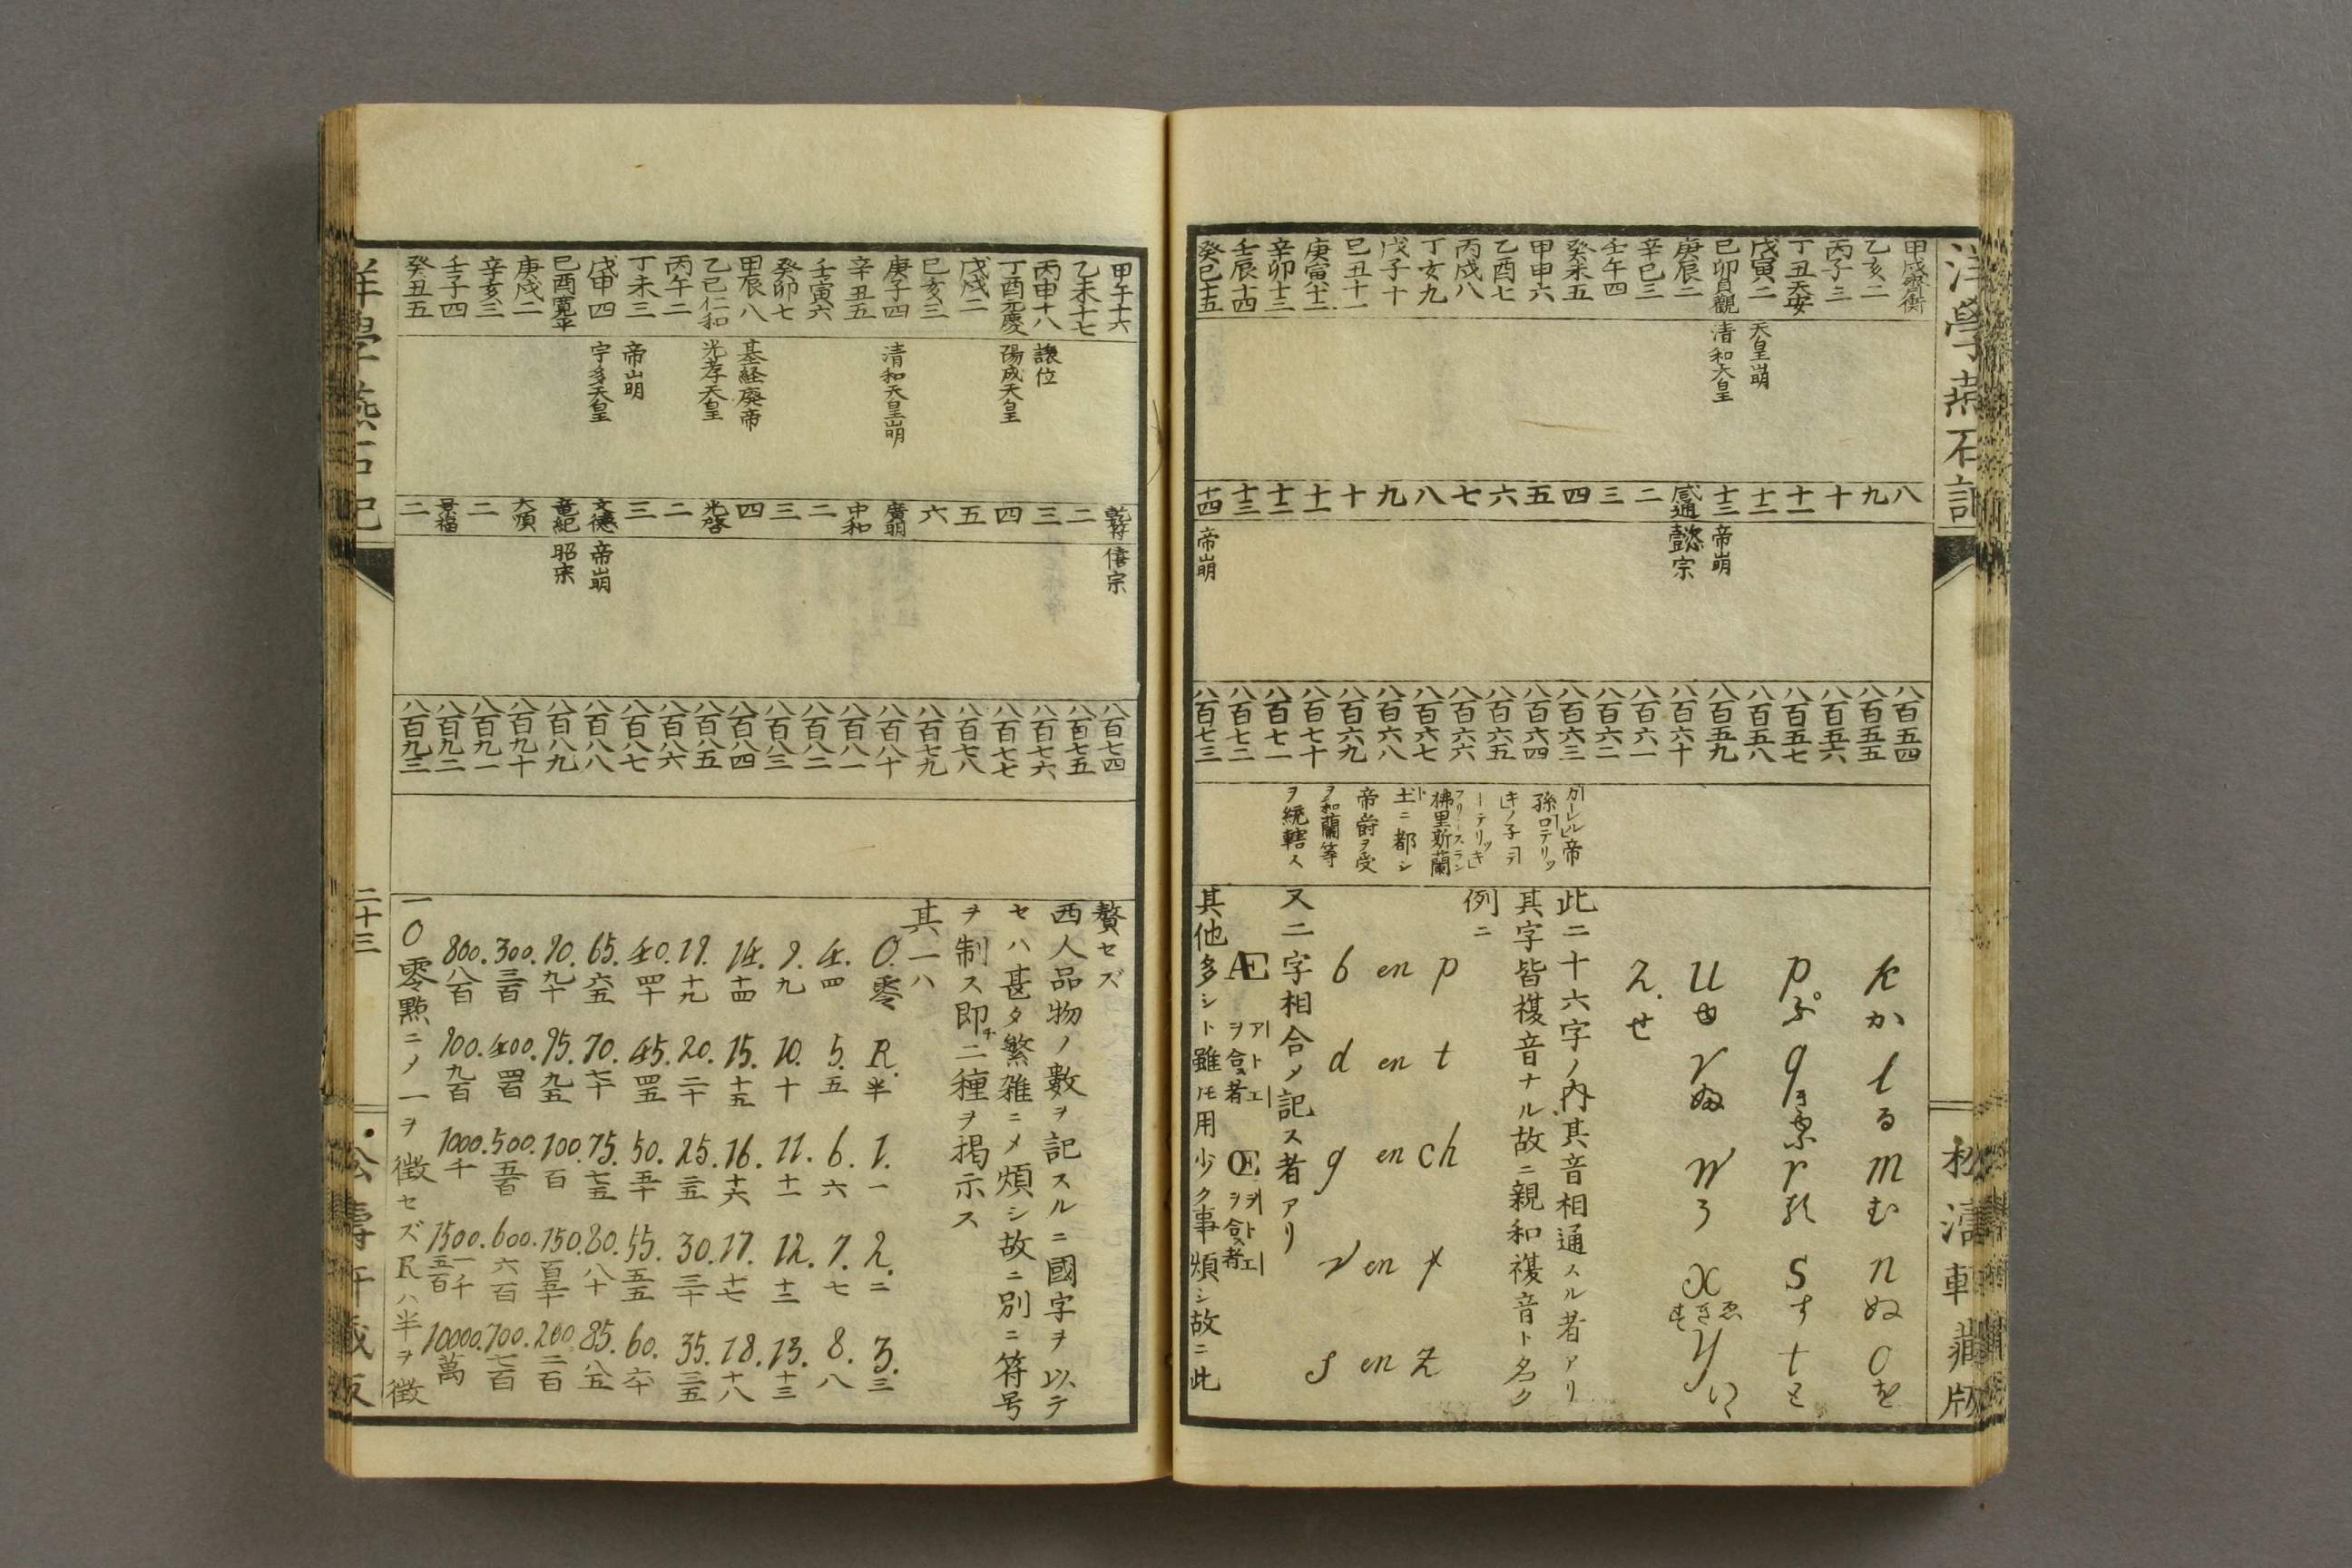 洋學燕石記
松濤軒藏版
甲戌齊衡
乙亥二
丙子三
丁丑天安
戊寅二 天皇崩
己卯貞觀 清和天皇
庚辰二
辛巳三
壬午四
癸未五
甲申六
乙酉七
丙戌八
丁亥九
戊子十
己丑十一
庚寅十二
辛卯十三
壬辰十四
癸巳十五
八
九
十
十一
十二
十三 帝崩
咸通 懿宗
二
三
四
五
六
七
八
九
十
十一
十二
十三
十四 帝崩
八百五四
八百五五
八百五六
八百五七
八百五八
八百五九
八百六十
八百六一
八百六二
八百六三
八百六四
八百六五
八百六六
八百六七
八百六八
八百六九
八百七十
八百七一
八百七二
八百七三
カーレル帝
孫ロテリッ
キノ子
ーテリッキ
フリースラン
拂里斯蘭
ド
土ニ都シ
帝爵ヲ受
ヲ和蘭等
ヲ統轄ス
k か l る m む n ぬ o を
p ぷ q r s す t と
u v w x y
z. せ
此二十六字ノ内其音相通スル者アリ
其字皆複音ナル故ニ親和複音ト名ク
例ニ
b en p d en t g en ch v en f s en z
又二字相合メ記ス者アリ
Æ アート エー ヲ合スル者 Œ ヲ合スル者
其他多シト雖ㇳモ用少ク事煩シ故ニ此
甲午十六
乙未十七
丙申十八 讓位
丁酉元慶 陽成天皇
戊戌二
己亥三
庚子四 清和天皇崩
辛丑五
壬寅六
癸卯七
甲辰八 基経廃帝
乙巳仁和 光孝天皇
丙午二
丁未三 帝崩
戊申四 宇多天皇
己酉寛平
庚戌二
辛亥三
壬子四
癸丑五
乾符 僖宗
二
三
四
五
六
廣明
中和
二
三
四
光啓
二
三
文德 帝崩
竜紀 昭宗
大順
二
景福
二
八百七四
八百七五
八百七六
八百七七
八百七八
八百七九
八百八十
八百八一
八百八二
八百八三
八百八四
八百八五
八百八六
八百八七
八百八八
八百八九
八百九十
八百九一
八百九二
八百九三
贅セズ
西人品物ノ數ヲ記スルニ國字ヲ以テ
セハ甚タ繁雜ニメ煩シ故ニ別ニ符号
ヲ制ス即チ二種ヲ掲示ス
其一ハ
0. 零 R. 半 1. 一 2. 二 3. 三
4. 四 5. 五 6. 六 7. 七 8. 八
9. 九 10. 十 11. 十一 12. 十二 13. 十三
14. 十四 15. 十五 16. 十六 17. 十七 18. 十八
19. 十九 20. 二十 25. 二五 30. 三十 35. 三五
40. 四十 45. 四五 50. 五十 55. 五五 60. 六十
65. 六五 70. 七十 75. 七五 80. 八十 85. 八五
90. 九十 95. 九五 100. 百 150. 百五十 200 二百
300. 三百 400. 四百 500. 五百 600. 六百 700. 七百
800. 八百 900. 九百 1000. 千 1500. 一千五百 10000. 萬
一〇零點ニメ一ヲ徴セズRハ半ヲ徴
洋學燕石記
二十三